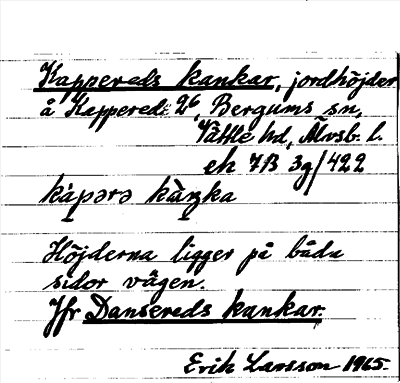 Kappereds kankar, jordhöjder
å Kappered: 2⁶, Bergums sn,
Vättle hd, Älvsb. l.
ek 7B 3g/422
kápərə kàŋka
Höjderna ligger på båda
sidor vägen.
Jfr Dansereds kankar.
Erik Larsson 1965.